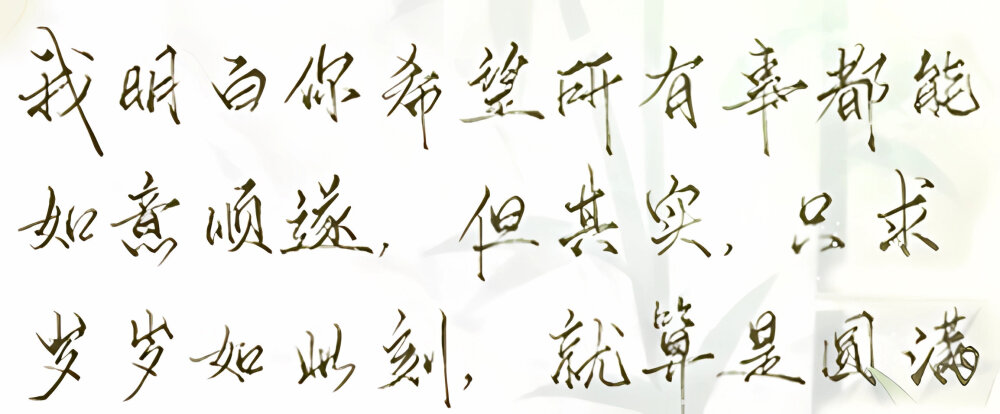 我明白你希望所有事都能
如意顺遂，但其实，只求
岁岁如此刻，就算是圆满